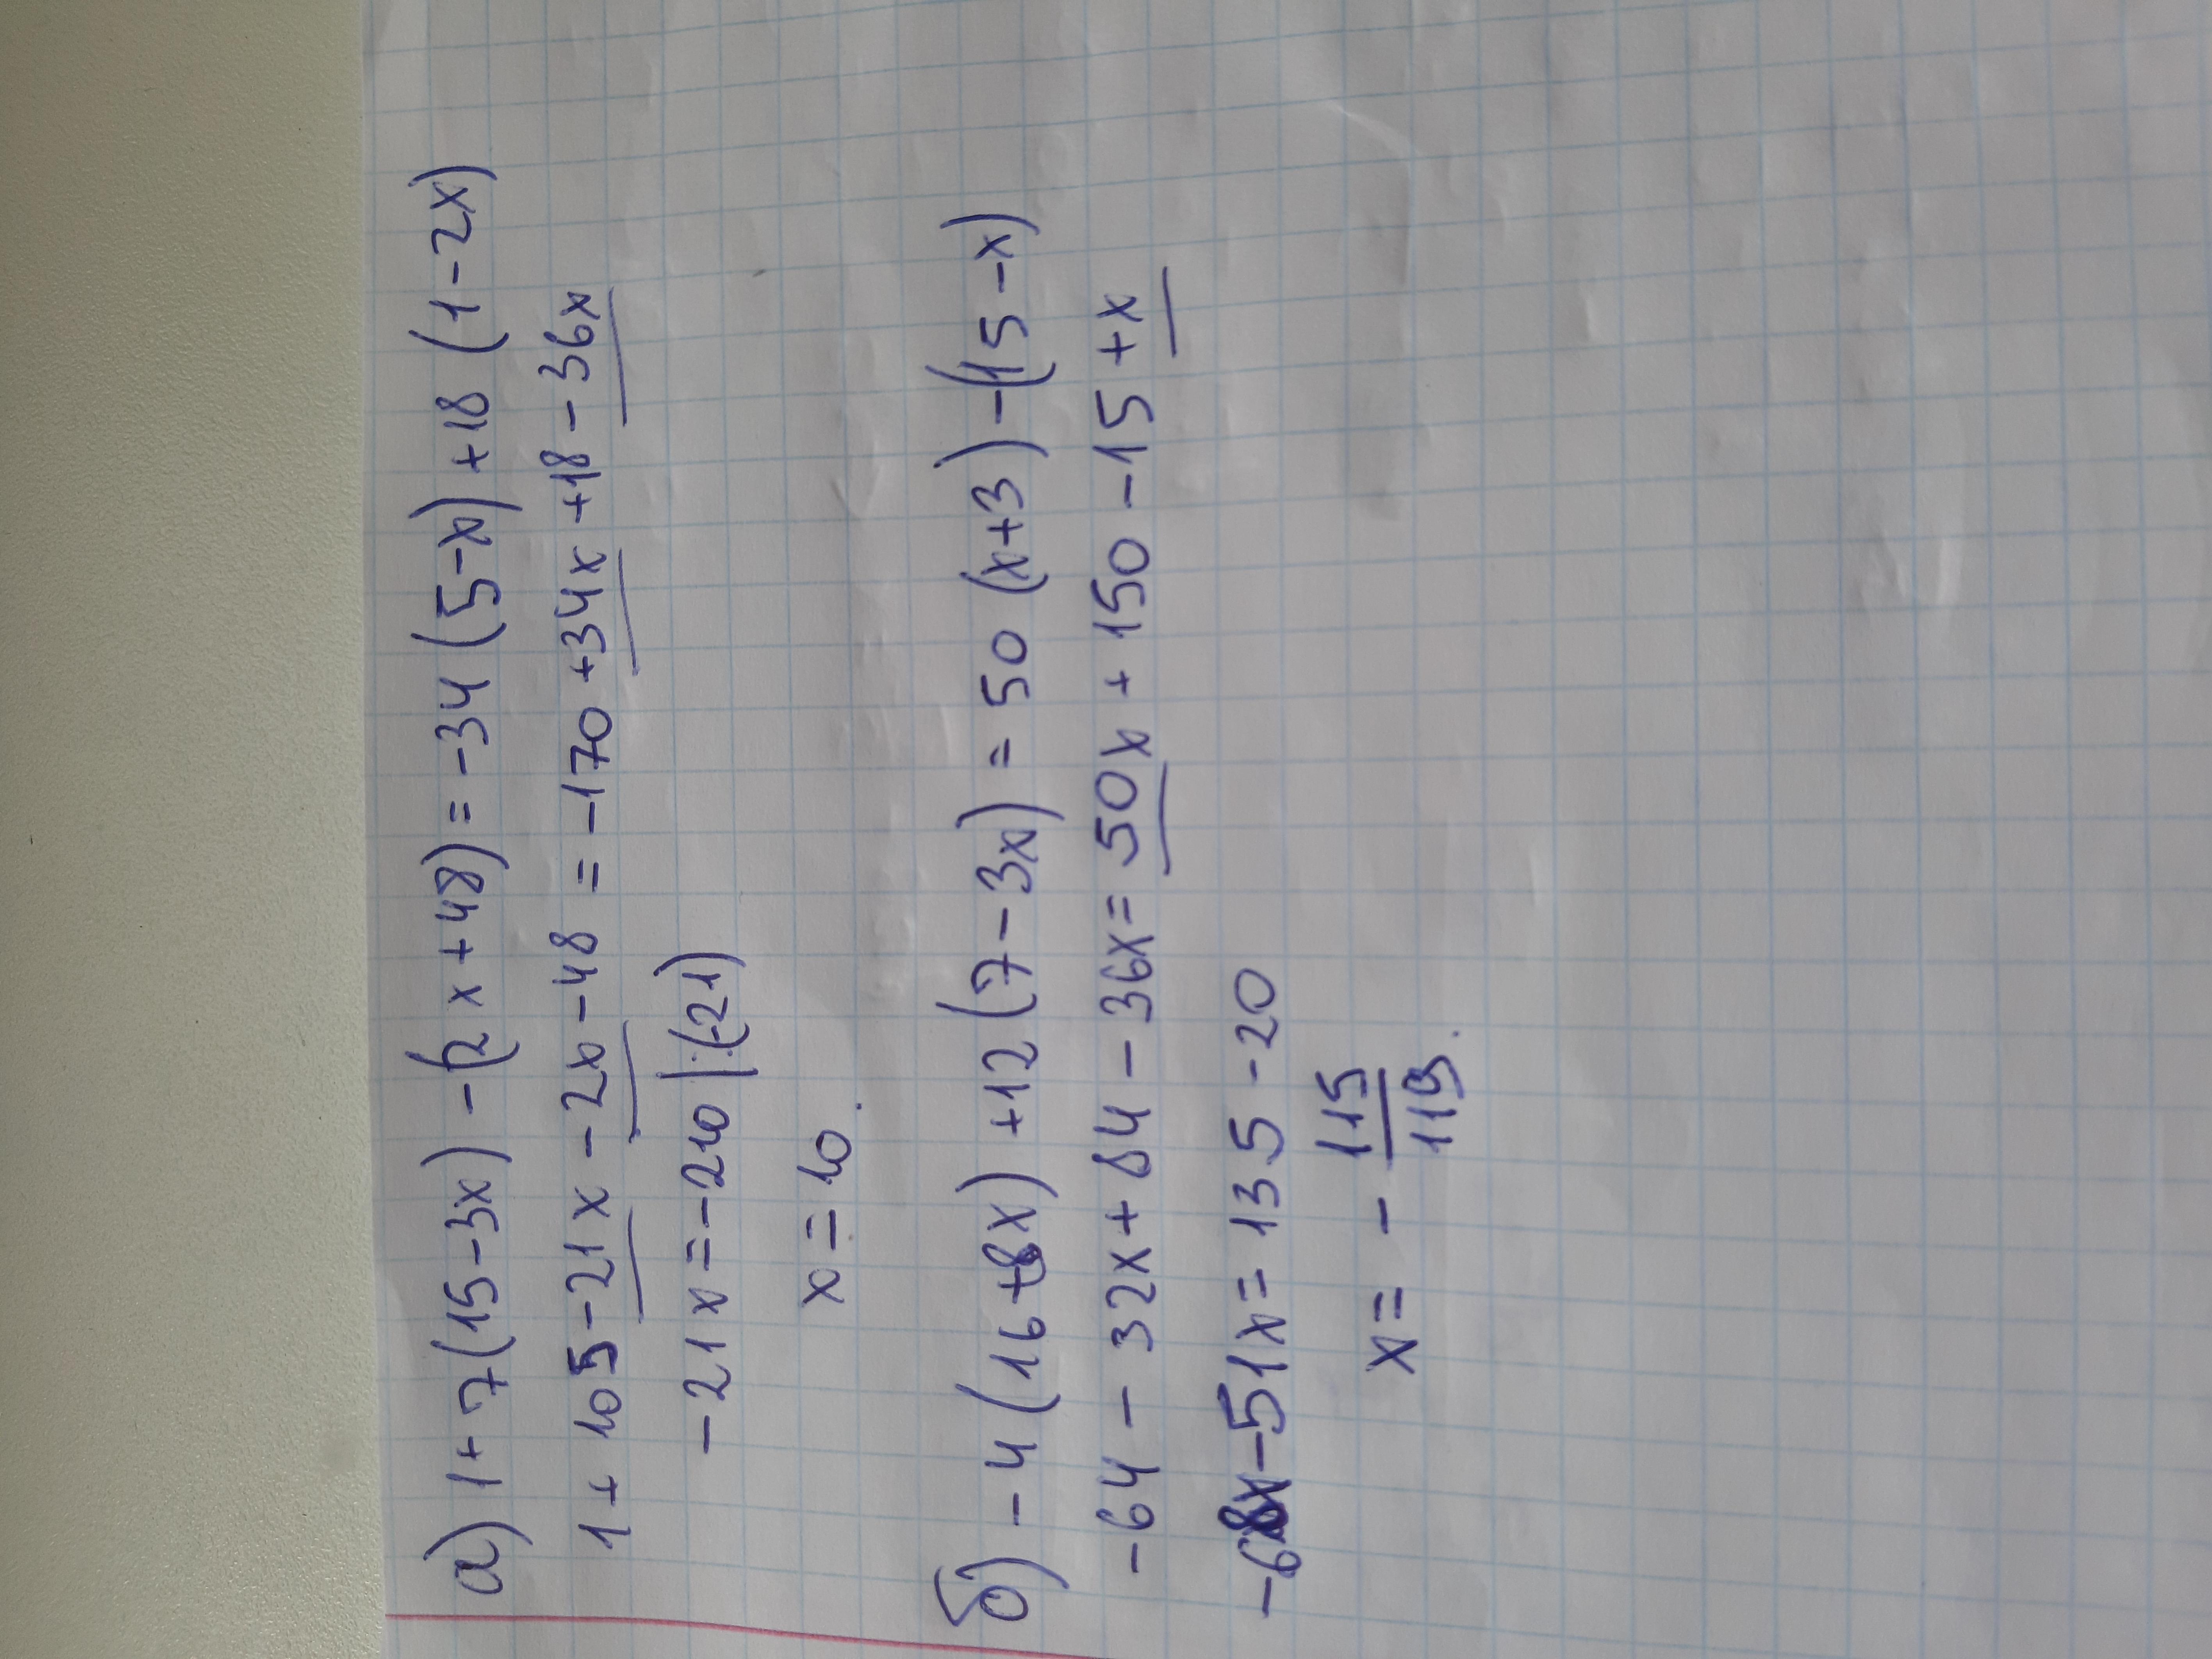 а) 1+7(15-3x)-(2x+48)=-34(5-x)+18(1-2x)
1+105-21x-2x-48=-170+34x+18-36x
-21x=-210 |:(-21)
x=10.
б) -4(16+8x)+12(7-3x)=50(x+3)-(15-x)
-64-32x+84-36x=50x+150-15+x
-68x-51x=135-20
x=-115/119.